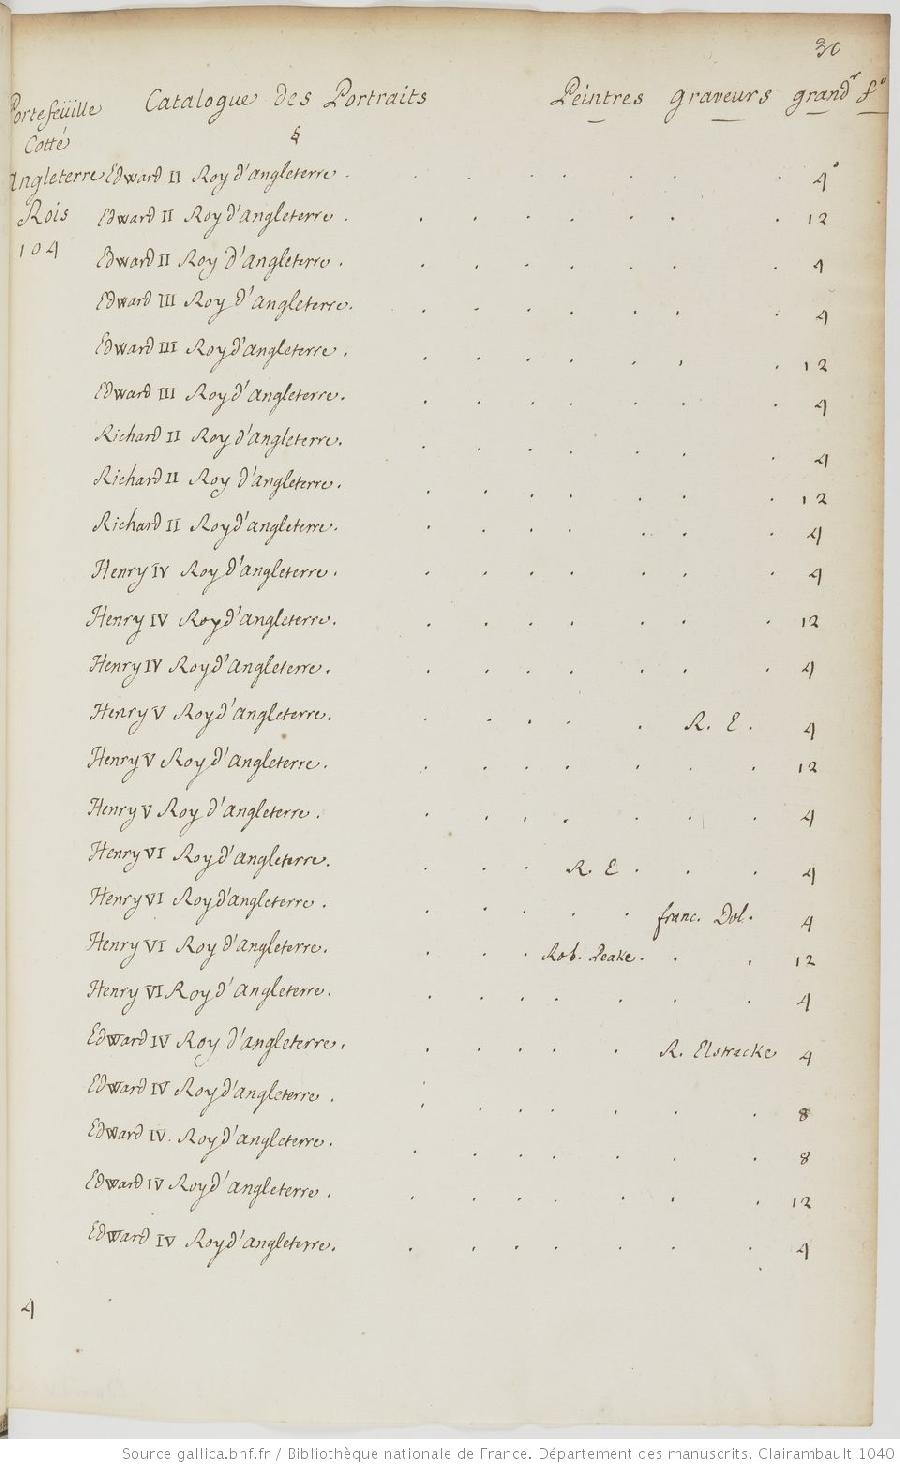 30
Portefeüille Catalogue des Portraits Peintres graveurs grandr fo
Cotté §
Angleterre Edward II Roy d'angleterre . 4o
Rois Edward II Roy d'angleterre . 12
104 Edward II Roy d'angleterre . 4
Edward III Roy d'angleterre . 4
Edward III Roy d'angleterre . 12
Edward III Roy d'angleterre . 4
Richard II Roy d'angleterre . 4
Richard II Roy d'angleterre . 12
Richard II Roy d'angleterre . 4
Henry IV Roy d'angleterre . 4
Henry IV Roy d'angleterre . 12
Henry IV Roy d'angleterre . 4
Henry V Roy d'angleterre . R. E. 4
Henry V Roy d'angleterre . 12
Henry V Roy d'angleterre . 4
Henry VI Roy d'angleterre . R. E. 4
Henry VI Roy d'angleterre . franc. Dol. 4
Henry VI Roy d'angleterre . Rob. Peake. 12
Henry VI Roy d'angleterre . 4
Edward IV Roy d'angleterre . R. Elstracke 4
Edward IV Roy d'angleterre . 8
Edward IV. Roy d'angleterre . 8
Edward IV Roy d'angleterre . 12
Edward IV Roy d'angleterre . 4
4
Source gallica.bnf.fr / Bibliothèque nationale de France. Département des manuscrits. Clairambault 1040